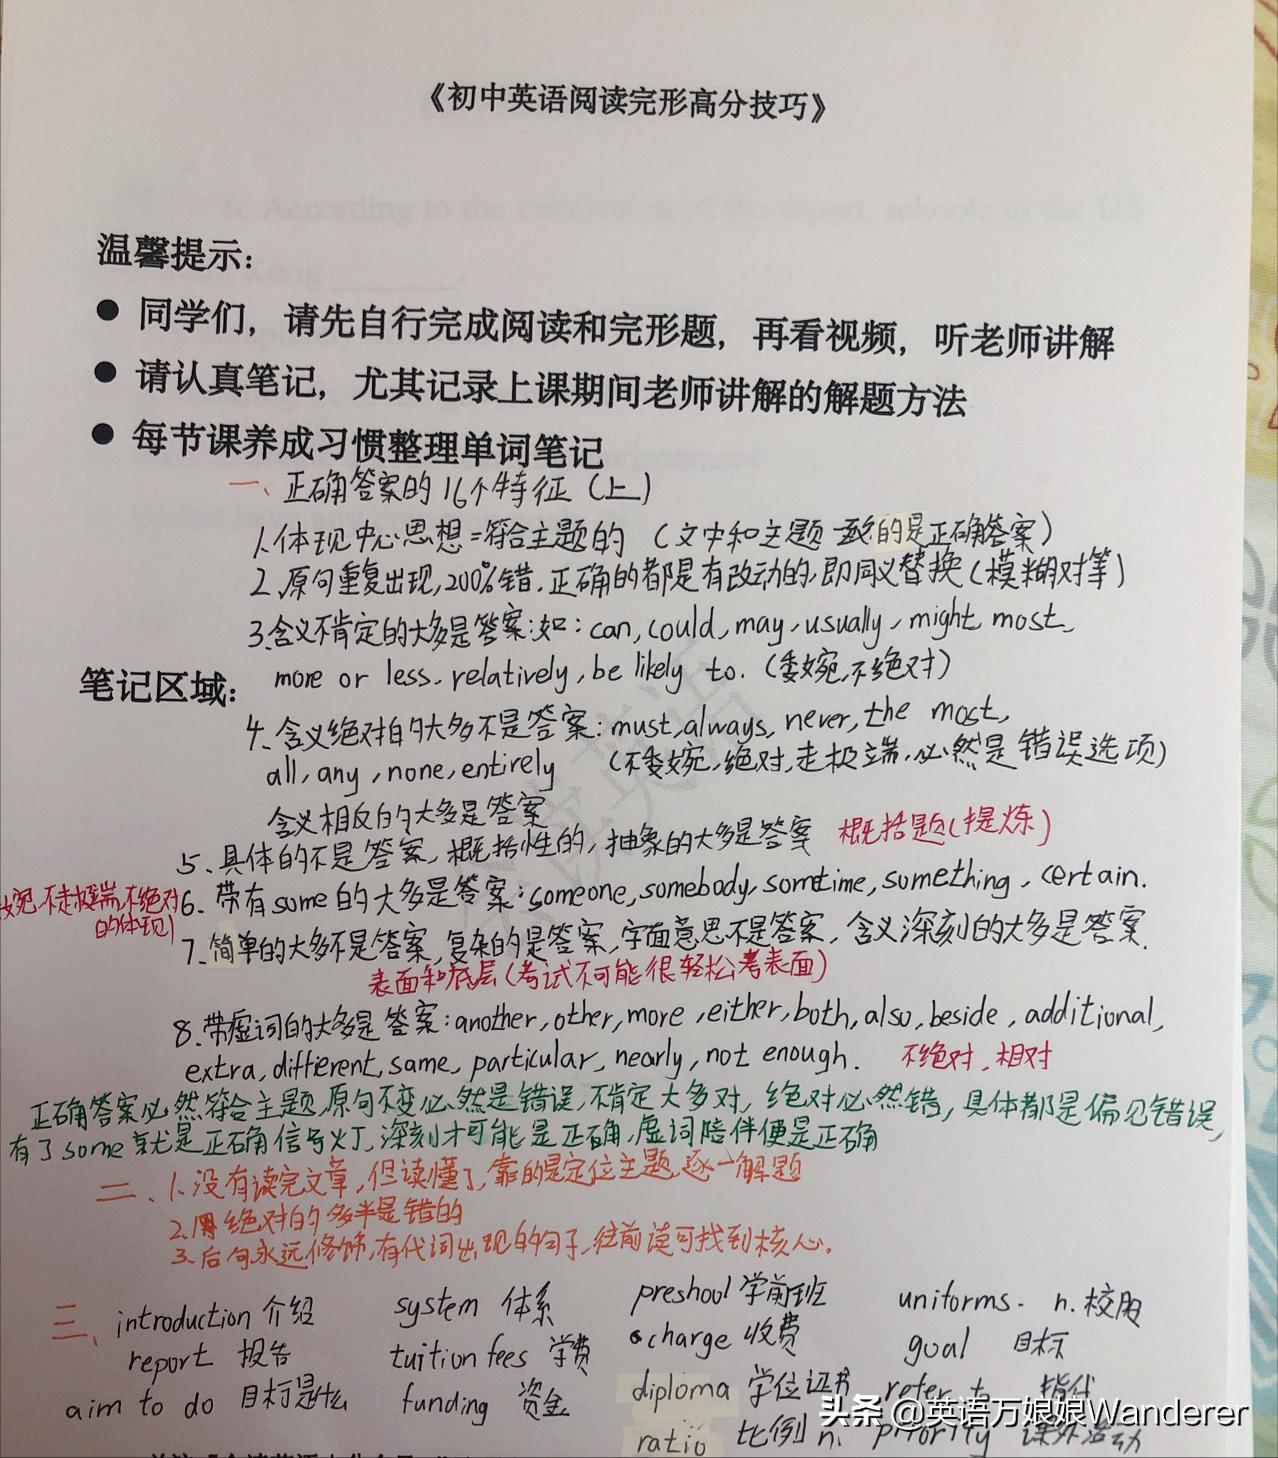 《初中英语阅读完形高分技巧》
温馨提示：
● 同学们，请先自行完成阅读和完形题，再看视频，听老师讲解
● 请认真笔记，尤其记录上课期间老师讲解的解题方法
● 每节课养成习惯整理单词笔记
一、正确答案的16个特征（上）
1.体现中心思想=符合主题的（文中和主题一致的是正确答案）
2.原句重复出现,200%错.正确的都是有改动的,即同义替换(模糊对等)
3.含义不肯定的大多是答案:如: can, could, may, usually, might, most,
笔记区域：
more or less, relatively, be likely to. (委婉,不绝对)
4、含义绝对的大多不是答案: must, always, never, the most,
all, any, none, entirely (不委婉,绝对,走极端,必然是错误选项)
含义相反的大多是答案
5、具体的不是答案,概括性的,抽象的大多是答案 概括题(提炼)
6、带有some的大多是答案: someone, somebody, somtime, something, certain.
婉,不走极端,不绝对
的体现)
7、简单的大多不是答案,复杂的是答案,字面意思不是答案,含义深刻的大多是答案.
表面和底层(考试不可能很轻松考表面)
8.带虚词的大多是答案: another, other, more, either, both, also, beside, additional,
extra, different, same, particular, nearly, not enough. 不绝对,相对
正确答案必然符合主题,原句不变必然是错误,不肯定大多对,绝对必然错,具体都是偏见错误,
有了some就是正确信号灯,深刻才可能是正确,虚词陪伴便是正确
二、1.没有读完文章,但读懂了,靠的是定位主题,逐一解题
2.用绝对的多半是错的
3.后句永远修饰,有代词出现的句子,往前读可找到核心.
三、introduction 介绍 system 体系 preshool 学前班 uniforms. n.校服
report 报告 tuition fees 学费 charge 收费 goal 目标
aim to do 目标是什么 funding 资金 diploma 学位证书 refer to 指代
ratio 比例 n. priority 课外活动
头条 @英语万娘娘Wanderer